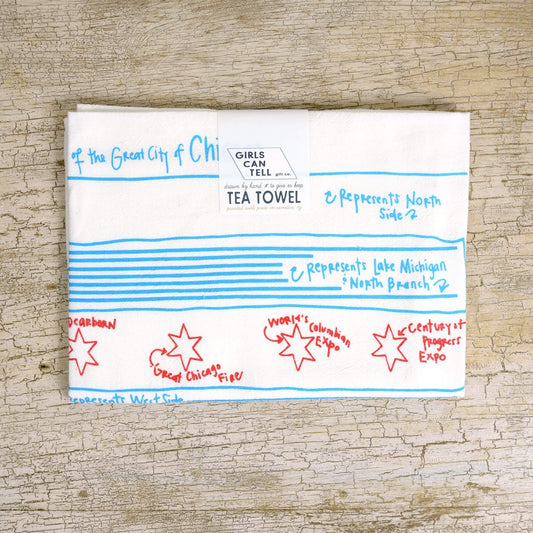 of the Great City of Chi
GIRLS
CAN
TELL
gift co.
drawn by hand to give or keep
TEA TOWEL
Represents North
Side
Represents Lake Michigan
North Branch
Dearborn
World's
Columbian
Expo
Century of
Progress
Expo
Great Chicago
Fire
Represents West Side